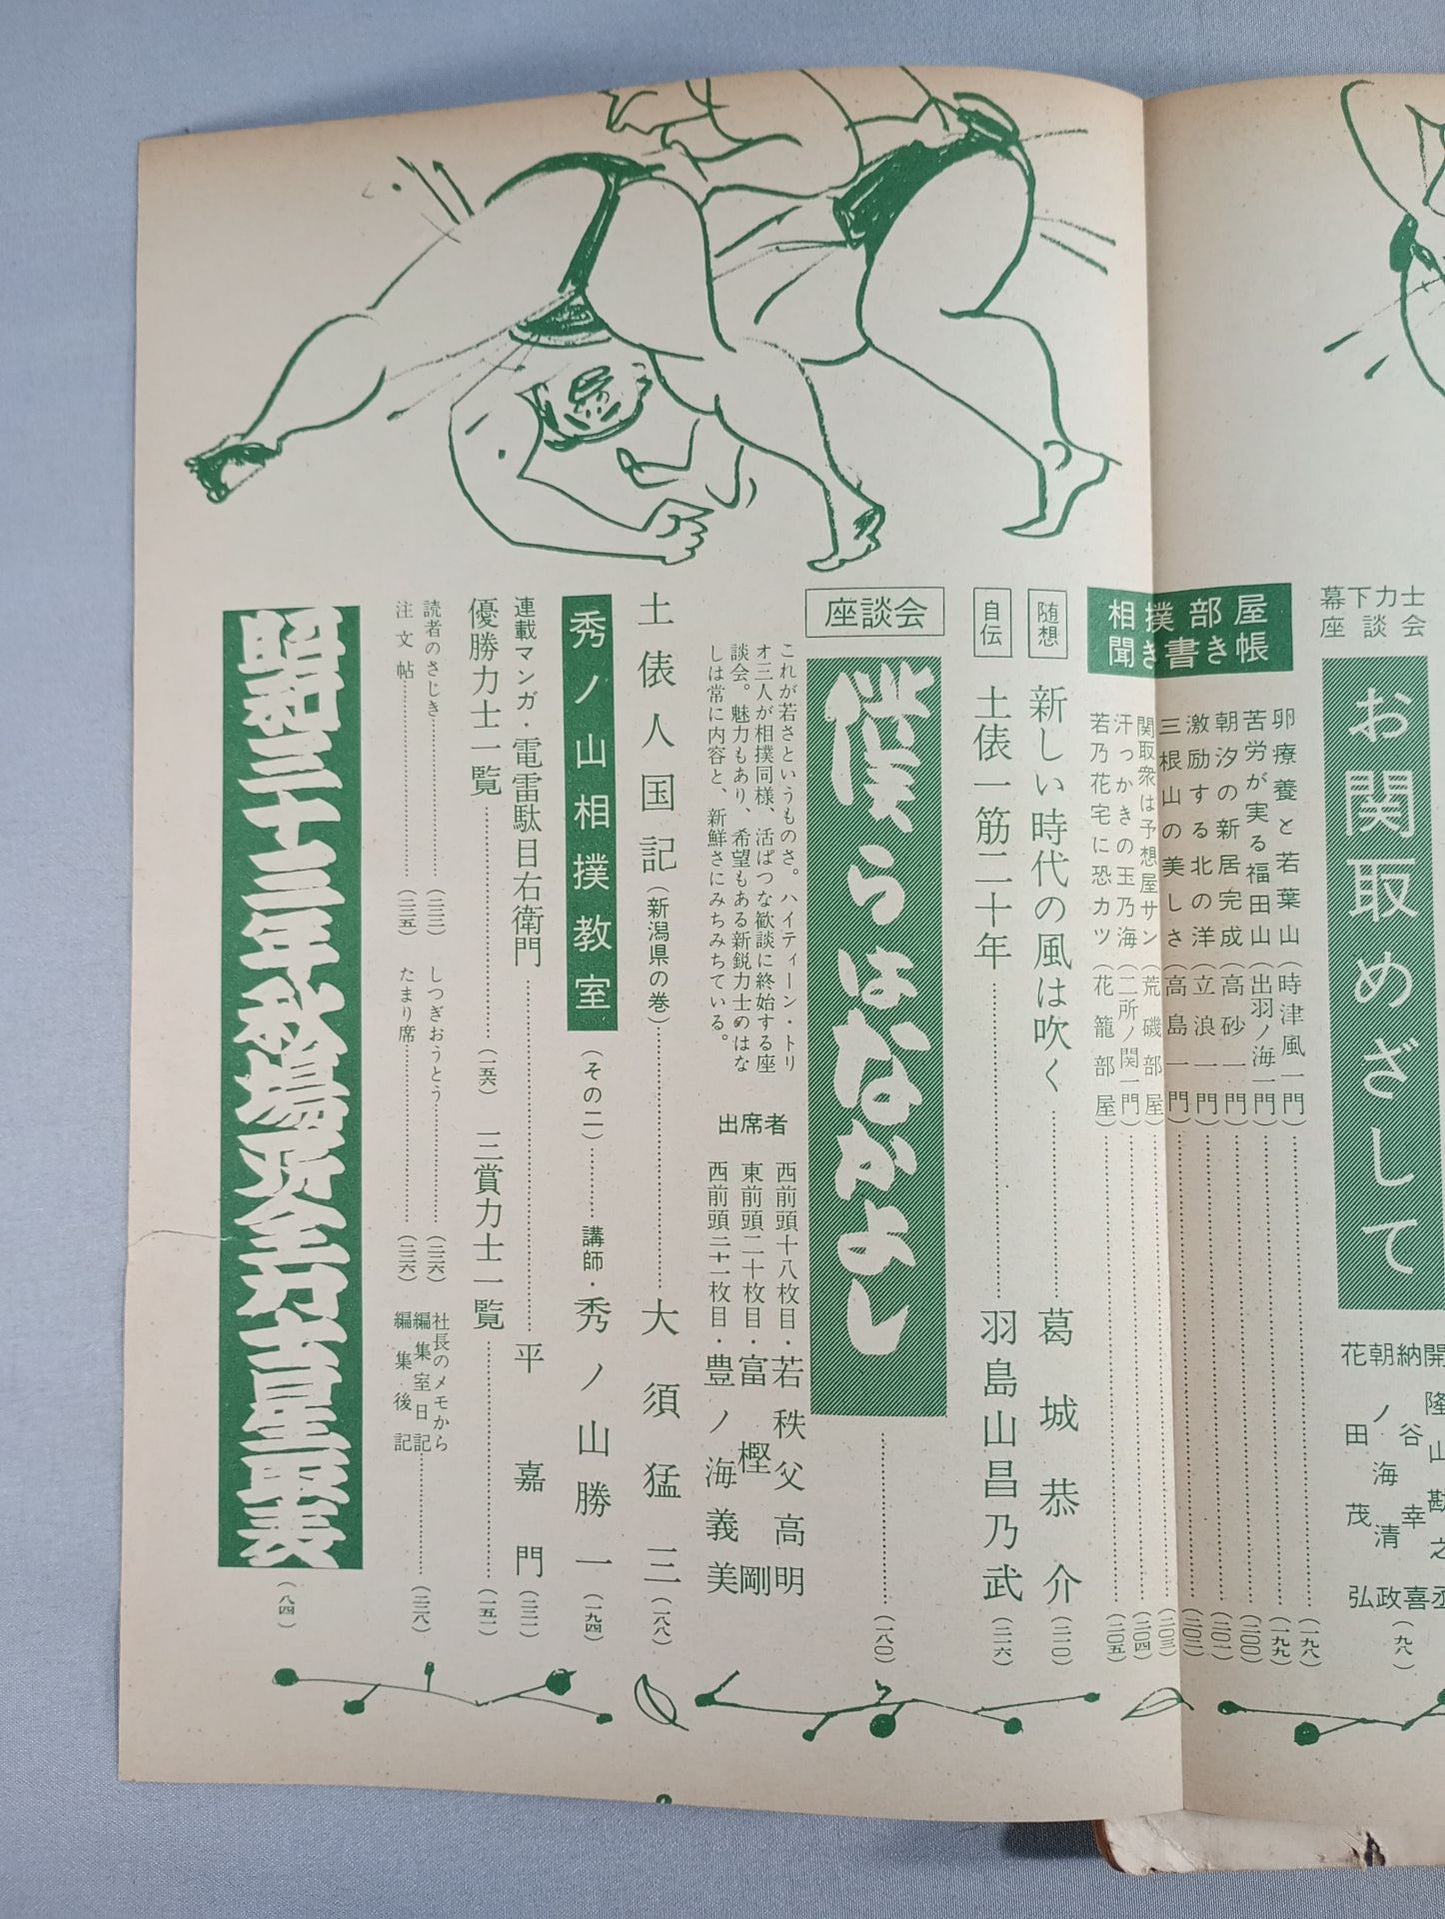 幕下力士
座談会
お関取めざして
開隆山勘之丞
納谷幸喜
朝ノ海清政
花田茂弘
(九八)
相撲部屋
聞き書き帳
卵療養と若葉山(時津風一門)(一九八)
苦労が実る福田山(出羽ノ海一門)(一九九)
朝汐の新居完成(高砂一門)(二〇〇)
激励する北の洋(立浪一門)(二〇一)
三根山の美しさ(高島一門)(二〇二)
関取衆は予想屋サン(荒磯部屋)(二〇三)
汗っかきの玉乃海(二所ノ関一門)(二〇四)
若乃花宅に恐カツ(花籠部屋)(二〇五)
随想 新しい時代の風は吹く 葛城恭介(二一〇)
自伝 土俵一筋二十年 羽島山昌乃武(二一六)
座談会
僕らはなかよし(一八〇)
これが若さというものさ。ハイティーン・トリ
オ三人が相撲同様、活ぱつな歓談に終始する座
談会。魅力もあり、希望もある新鋭力士のはな
しは常に内容と、新鮮さにみちみちている。
出席者
西前頭十八枚目・若秩父高明
東前頭二十枚目・富樫剛
西前頭二十一枚目・豊ノ海義美
土俵人国記(新潟県の巻) 大須猛三(一八八)
秀ノ山相撲教室(その二) 講師・秀ノ山勝一(一九四)
連載マンガ・電雷駄目右衛門 平嘉門(二二一)
優勝力士一覧(一五六) 三賞力士一覧(一五一)
読者のさじき(二三二) しつぎおうとう(二三六) 社長のメモから
編集室日記
注文帖(二三五) たまり席(二三六) 編集後記(二三八)
昭和三十三年秋場所全力士星取表(八四)